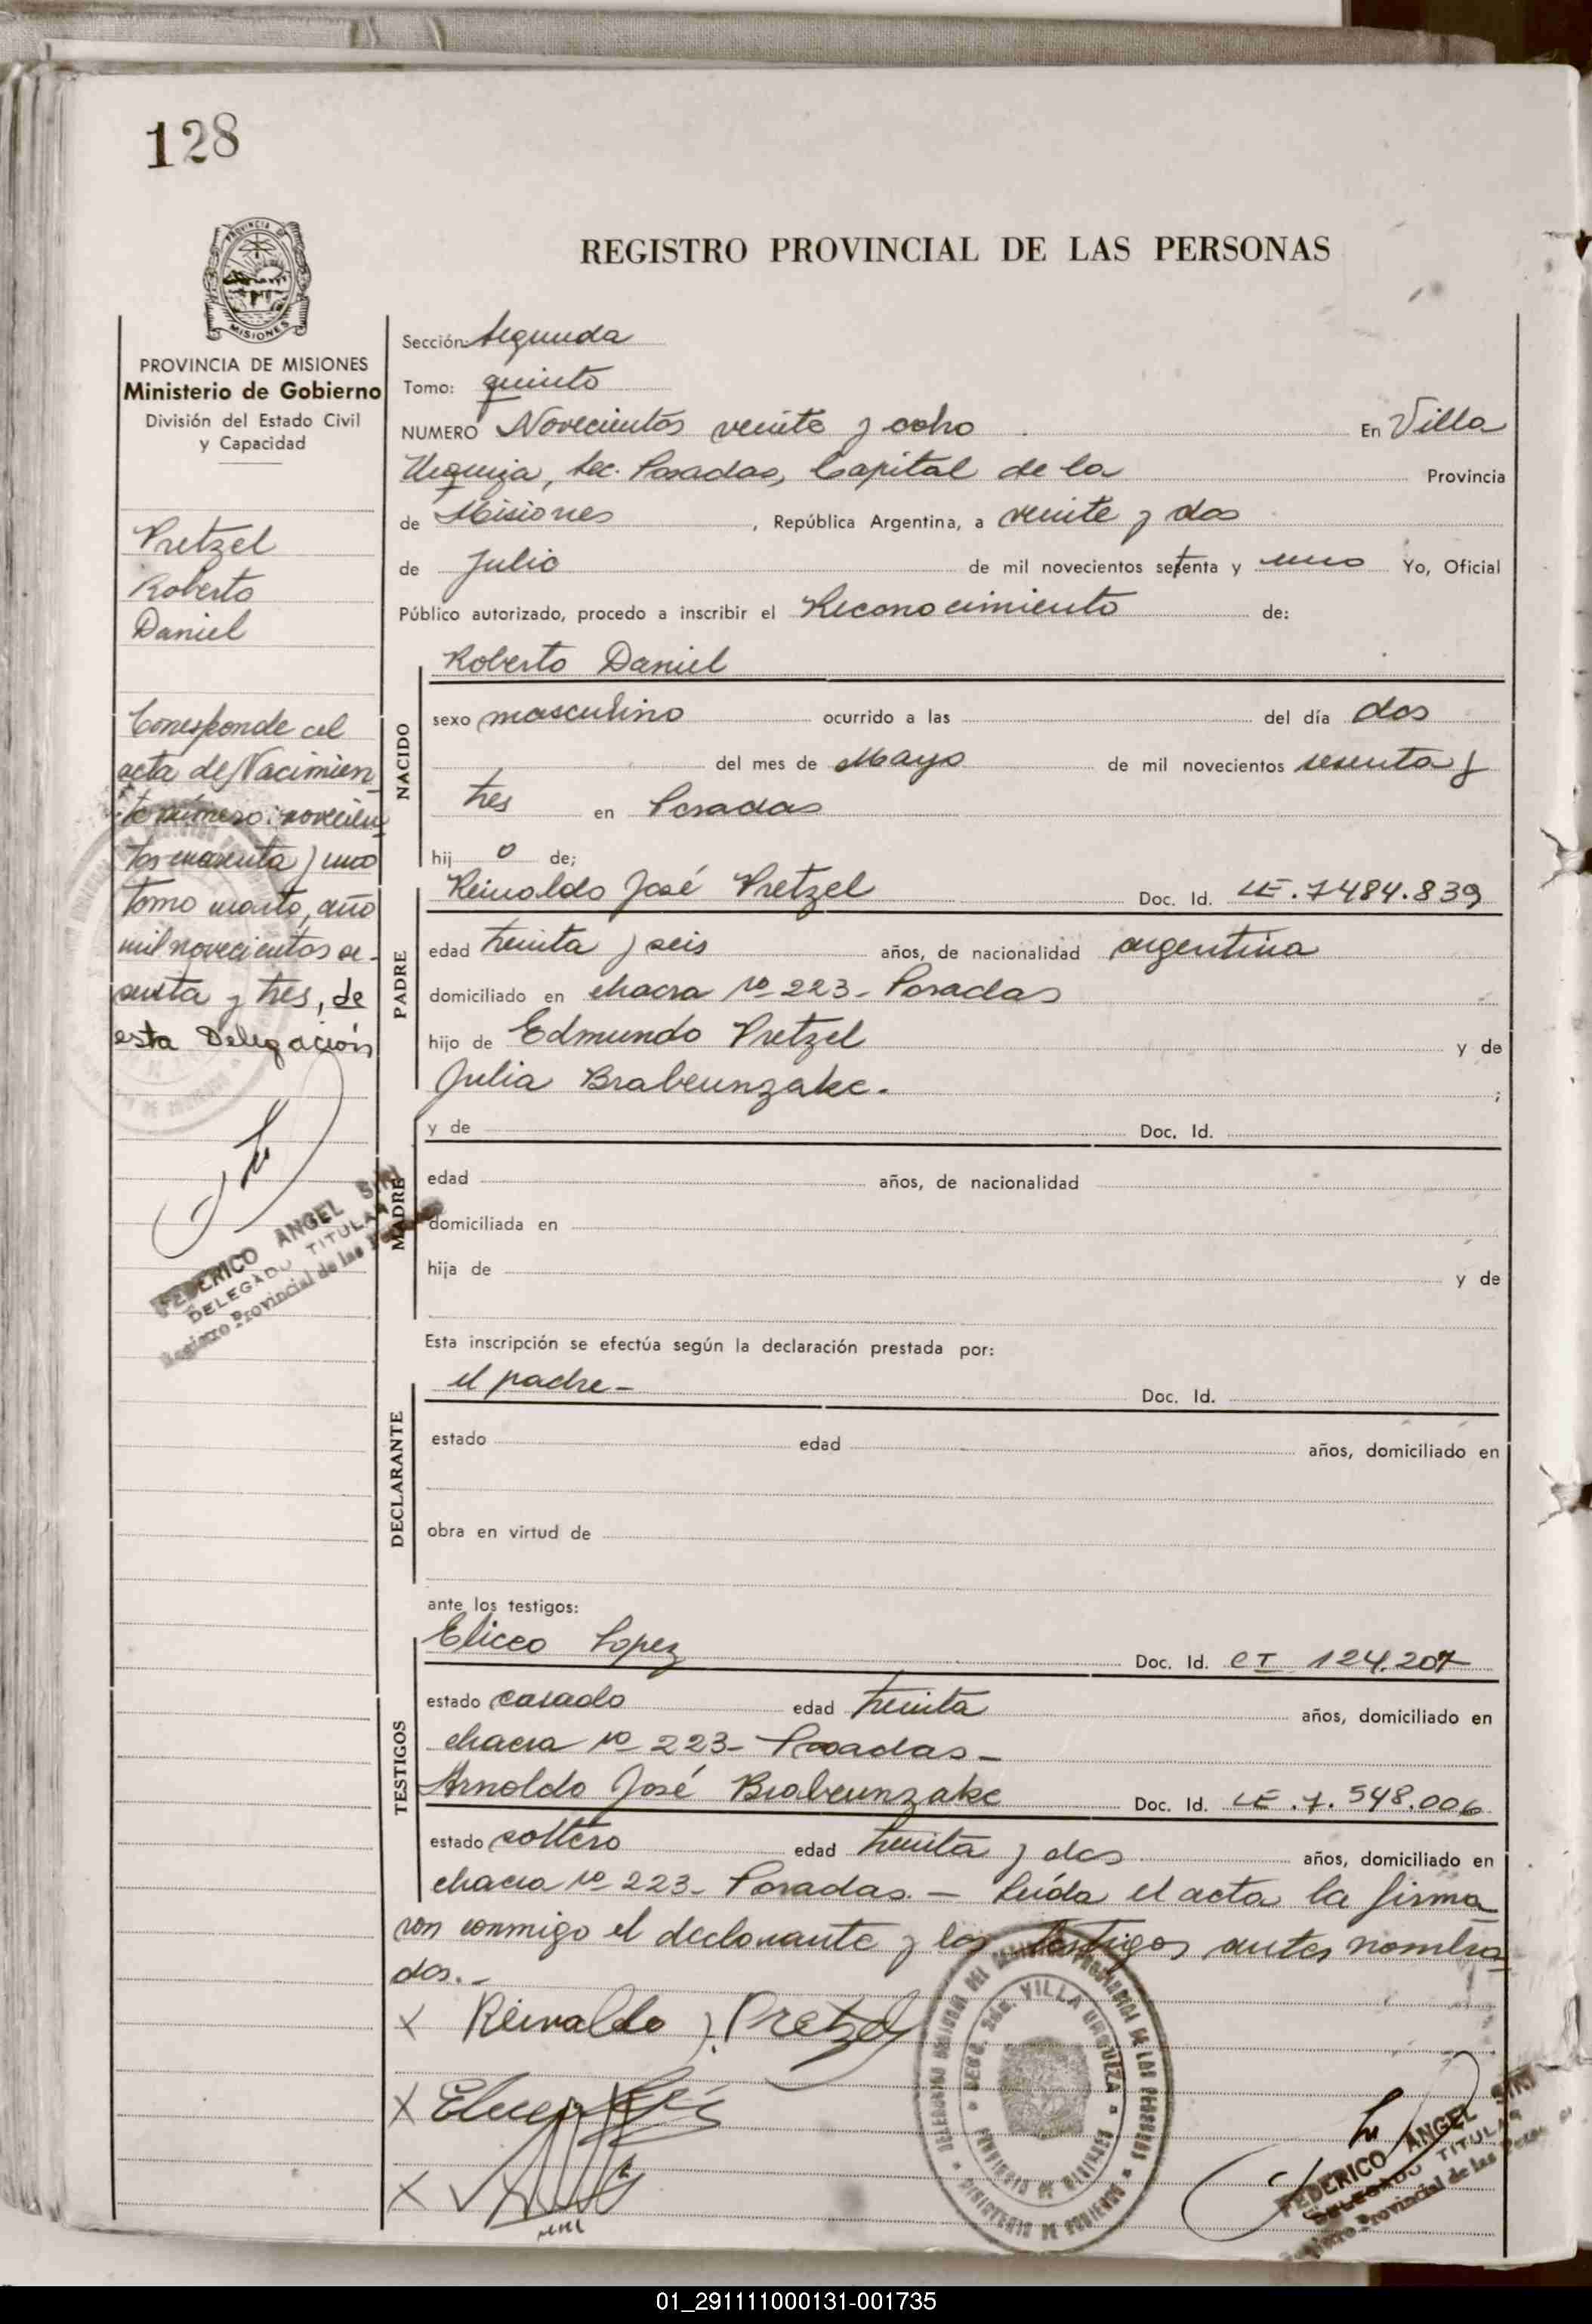 128
REGISTRO PROVINCIAL DE LAS PERSONAS
MISIONES
PROVINCIA DE MISIONES
Ministerio de Gobierno
División del Estado Civil
y Capacidad
Pretzel
Roberto
Daniel
Corresponde al
acta de Nacimien
to número: novecien
tos cuarenta y uno
Tomo cuarto, año
mil novecientos se-
senta y tres, de
esta Delegación
FEDERICO ANGEL SIRI
DELEGADO TITULAR
Registro Provincial de las
Sección: Segunda
Tomo: quinto
NUMERO Novecientos veinte y ocho . En Villa
Urquiza, Sec. Posadas, Capital de la Provincia
de Misiones , República Argentina, a veinte y dos
de Julio de mil novecientos setenta y uno Yo, Oficial
Público autorizado, procedo a inscribir el Reconocimiento de:
Roberto Daniel
NACIDO
sexo masculino ocurrido a las del día dos
del mes de Mayo de mil novecientos sesenta y
tres en Posadas
hij o de;
PADRE
Reinaldo José Pretzel Doc. Id. LE.7484.839
edad treinta y seis años, de nacionalidad argentina
domiciliado en chacra no 223- Posadas
hijo de Edmundo Pretzel y de
Julia Brabeunzake. ;
MADRE
y de Doc. Id.
edad años, de nacionalidad
domiciliada en
hija de y de
Esta inscripción se efectúa según la declaración prestada por:
el padre- Doc. Id.
DECLARANTE
estado edad años, domiciliado en
obra en virtud de
ante los testigos:
TESTIGOS
Eliceo Lopez Doc. Id. CI 124.207
estado casado edad treinta años, domiciliado en
chacra no 223- Posadas-
Arnoldo José Brabeunzake Doc. Id. LE.7.548.006
estado soltero edad treinta y dos años, domiciliado en
chacra no 223- Posadas. - Leída el acta la firma
ron conmigo el declarante y los testigos antes nombra
dos.-
x Reinaldo J. Pretzel
X
X
VILLA URQUIZA
FEDERICO ANGEL SIRI
DELEGADO TITULAR
Registro Provincial de las
01_291111000131-001735